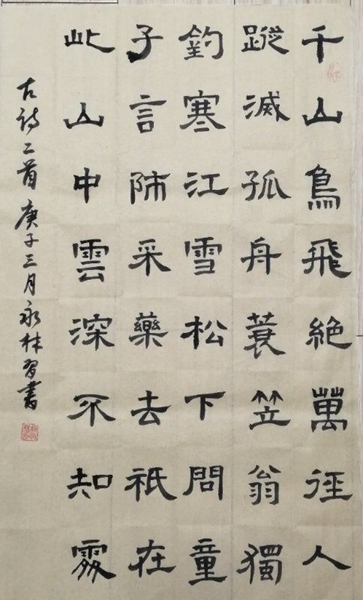 千山鳥飛絶萬徑人
蹤滅孤舟蓑笠翁獨
釣寒江雪松下問童
子言師采藥去衹在
此山中雲深不知處
古詩二首庚子三月永林習書